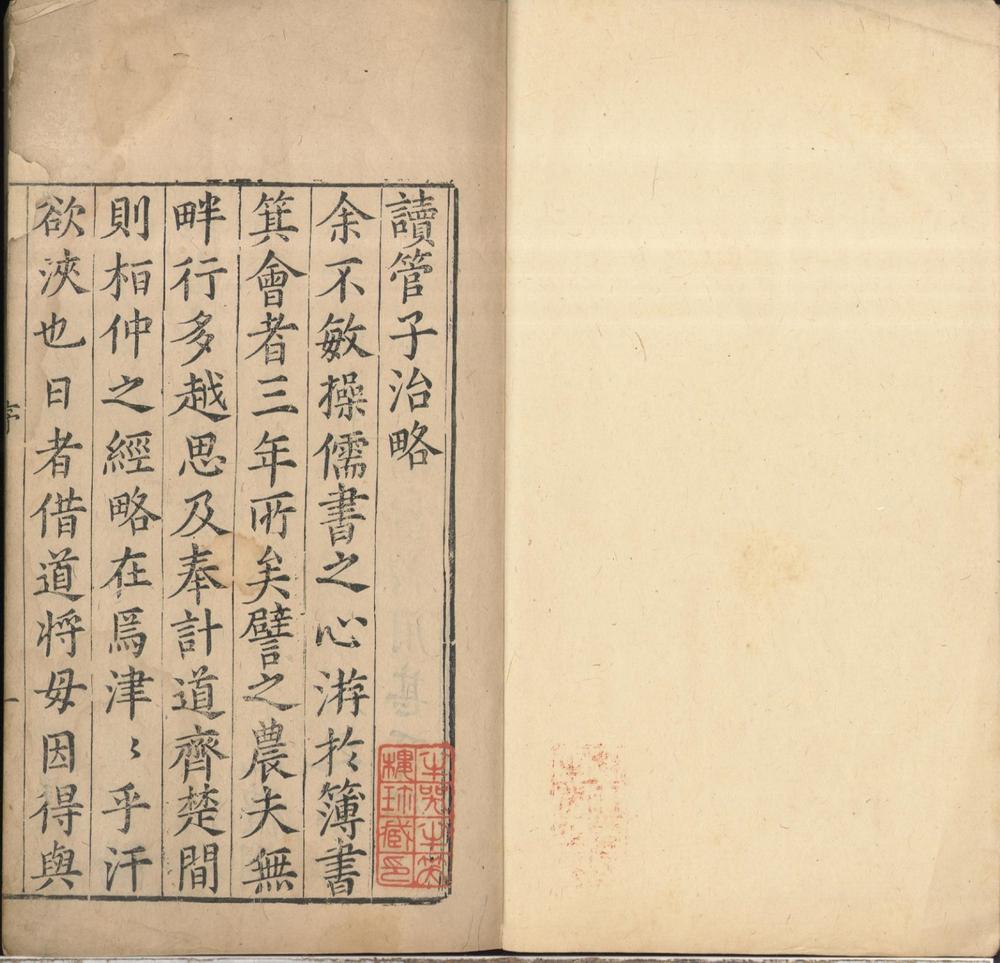 讀管子治略
余不敏操儒書之心游於簿書
箕會者三年所矣譬之農夫無
畔行多越思及奉計道齊楚間
則桓仲之經略在焉津〻乎汗
欲浹也日者借道將毋因得與
序
一
半哭半笑
樓珎藏印